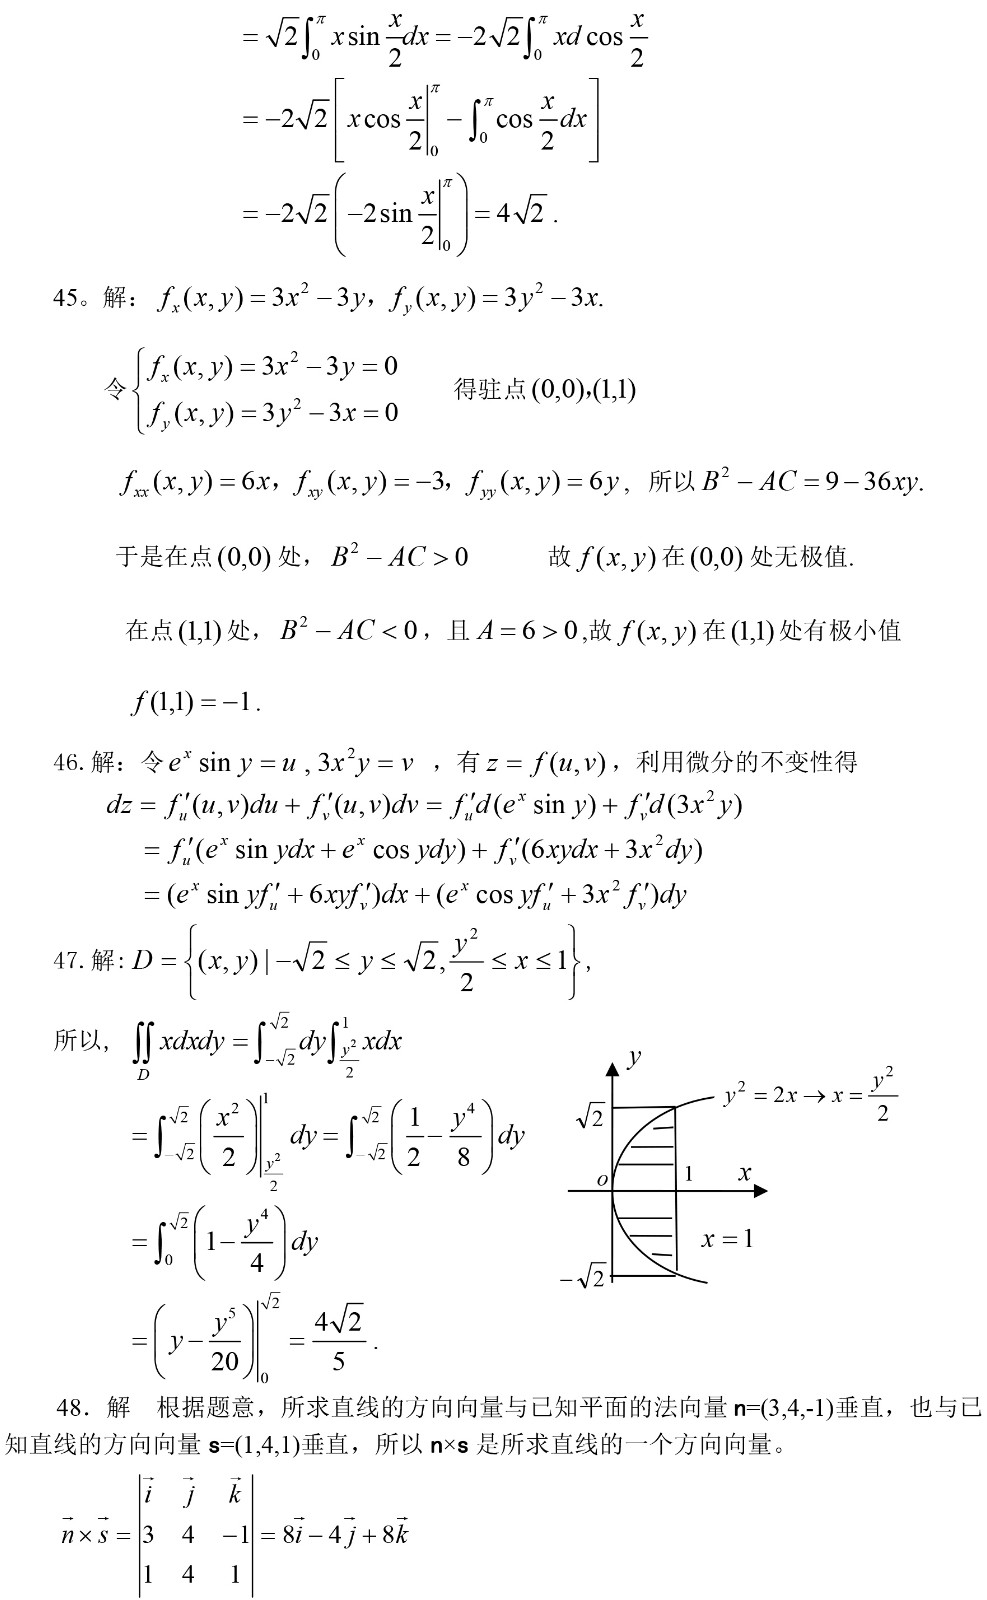 $= \sqrt{2}\int_0^{\pi} x\sin\frac{x}{2}dx = -2\sqrt{2}\int_0^{\pi} xd\cos\frac{x}{2}$
$= -2\sqrt{2}\left[x\cos\frac{x}{2}\Big|_0^{\pi} - \int_0^{\pi}\cos\frac{x}{2}dx\right]$
$= -2\sqrt{2}\left(-2\sin\frac{x}{2}\Big|_0^{\pi}\right) = 4\sqrt{2}$ .
45。解： $f_x(x,y) = 3x^2 - 3y$，$f_y(x,y) = 3y^2 - 3x$.
令 $\begin{cases} f_x(x,y) = 3x^2 - 3y = 0 \\ f_y(x,y) = 3y^2 - 3x = 0 \end{cases}$ 得驻点 (0,0)，(1,1)
$f_{xx}(x,y) = 6x$，$f_{xy}(x,y) = -3$，$f_{yy}(x,y) = 6y$， 所以 $B^2 - AC = 9 - 36xy$.
于是在点 (0,0) 处， $B^2 - AC > 0$ 故 $f(x,y)$ 在 (0,0) 处无极值.
在点 (1,1) 处， $B^2 - AC < 0$，且 $A = 6 > 0$,故 $f(x,y)$ 在 (1,1) 处有极小值
$f(1,1) = -1$.
46.解：令 $e^x\sin y = u$ , $3x^2y = v$ ，有 $z = f(u,v)$，利用微分的不变性得
$dz = f_u'(u,v)du + f_v'(u,v)dv = f_u'd(e^x\sin y) + f_v'd(3x^2y)$
$= f_u'(e^x\sin ydx + e^x\cos ydy) + f_v'(6xydx + 3x^2dy)$
$= (e^x\sin yf_u' + 6xyf_v')dx + (e^x\cos yf_u' + 3x^2f_v')dy$
47.解: $D = \left\{(x,y)\,|-\sqrt{2} \le y \le \sqrt{2}, \frac{y^2}{2} \le x \le 1\right\}$,
所以, $\iint_D xdxdy = \int_{-\sqrt{2}}^{\sqrt{2}} dy\int_{\frac{y^2}{2}}^{1} xdx$
$= \int_{-\sqrt{2}}^{\sqrt{2}}\left(\frac{x^2}{2}\right)\Big|_{\frac{y^2}{2}}^{1} dy = \int_{-\sqrt{2}}^{\sqrt{2}}\left(\frac{1}{2} - \frac{y^4}{8}\right)dy$
$= \int_0^{\sqrt{2}}\left(1 - \frac{y^4}{4}\right)dy$
$= \left(y - \frac{y^5}{20}\right)\Big|_0^{\sqrt{2}} = \frac{4\sqrt{2}}{5}$ .
$y$
$y^2 = 2x \to x = \frac{y^2}{2}$
$\sqrt{2}$
$o$ 1 $x$
$x = 1$
$-\sqrt{2}$
48．解 根据题意，所求直线的方向向量与已知平面的法向量 **n**=(3,4,-1)垂直，也与已
知直线的方向向量 **s**=(1,4,1)垂直，所以 **n**×**s** 是所求直线的一个方向向量。
$\vec{n} \times \vec{s} = \begin{vmatrix} \vec{i} & \vec{j} & \vec{k} \\ 3 & 4 & -1 \\ 1 & 4 & 1 \end{vmatrix} = 8\vec{i} - 4\vec{j} + 8\vec{k}$